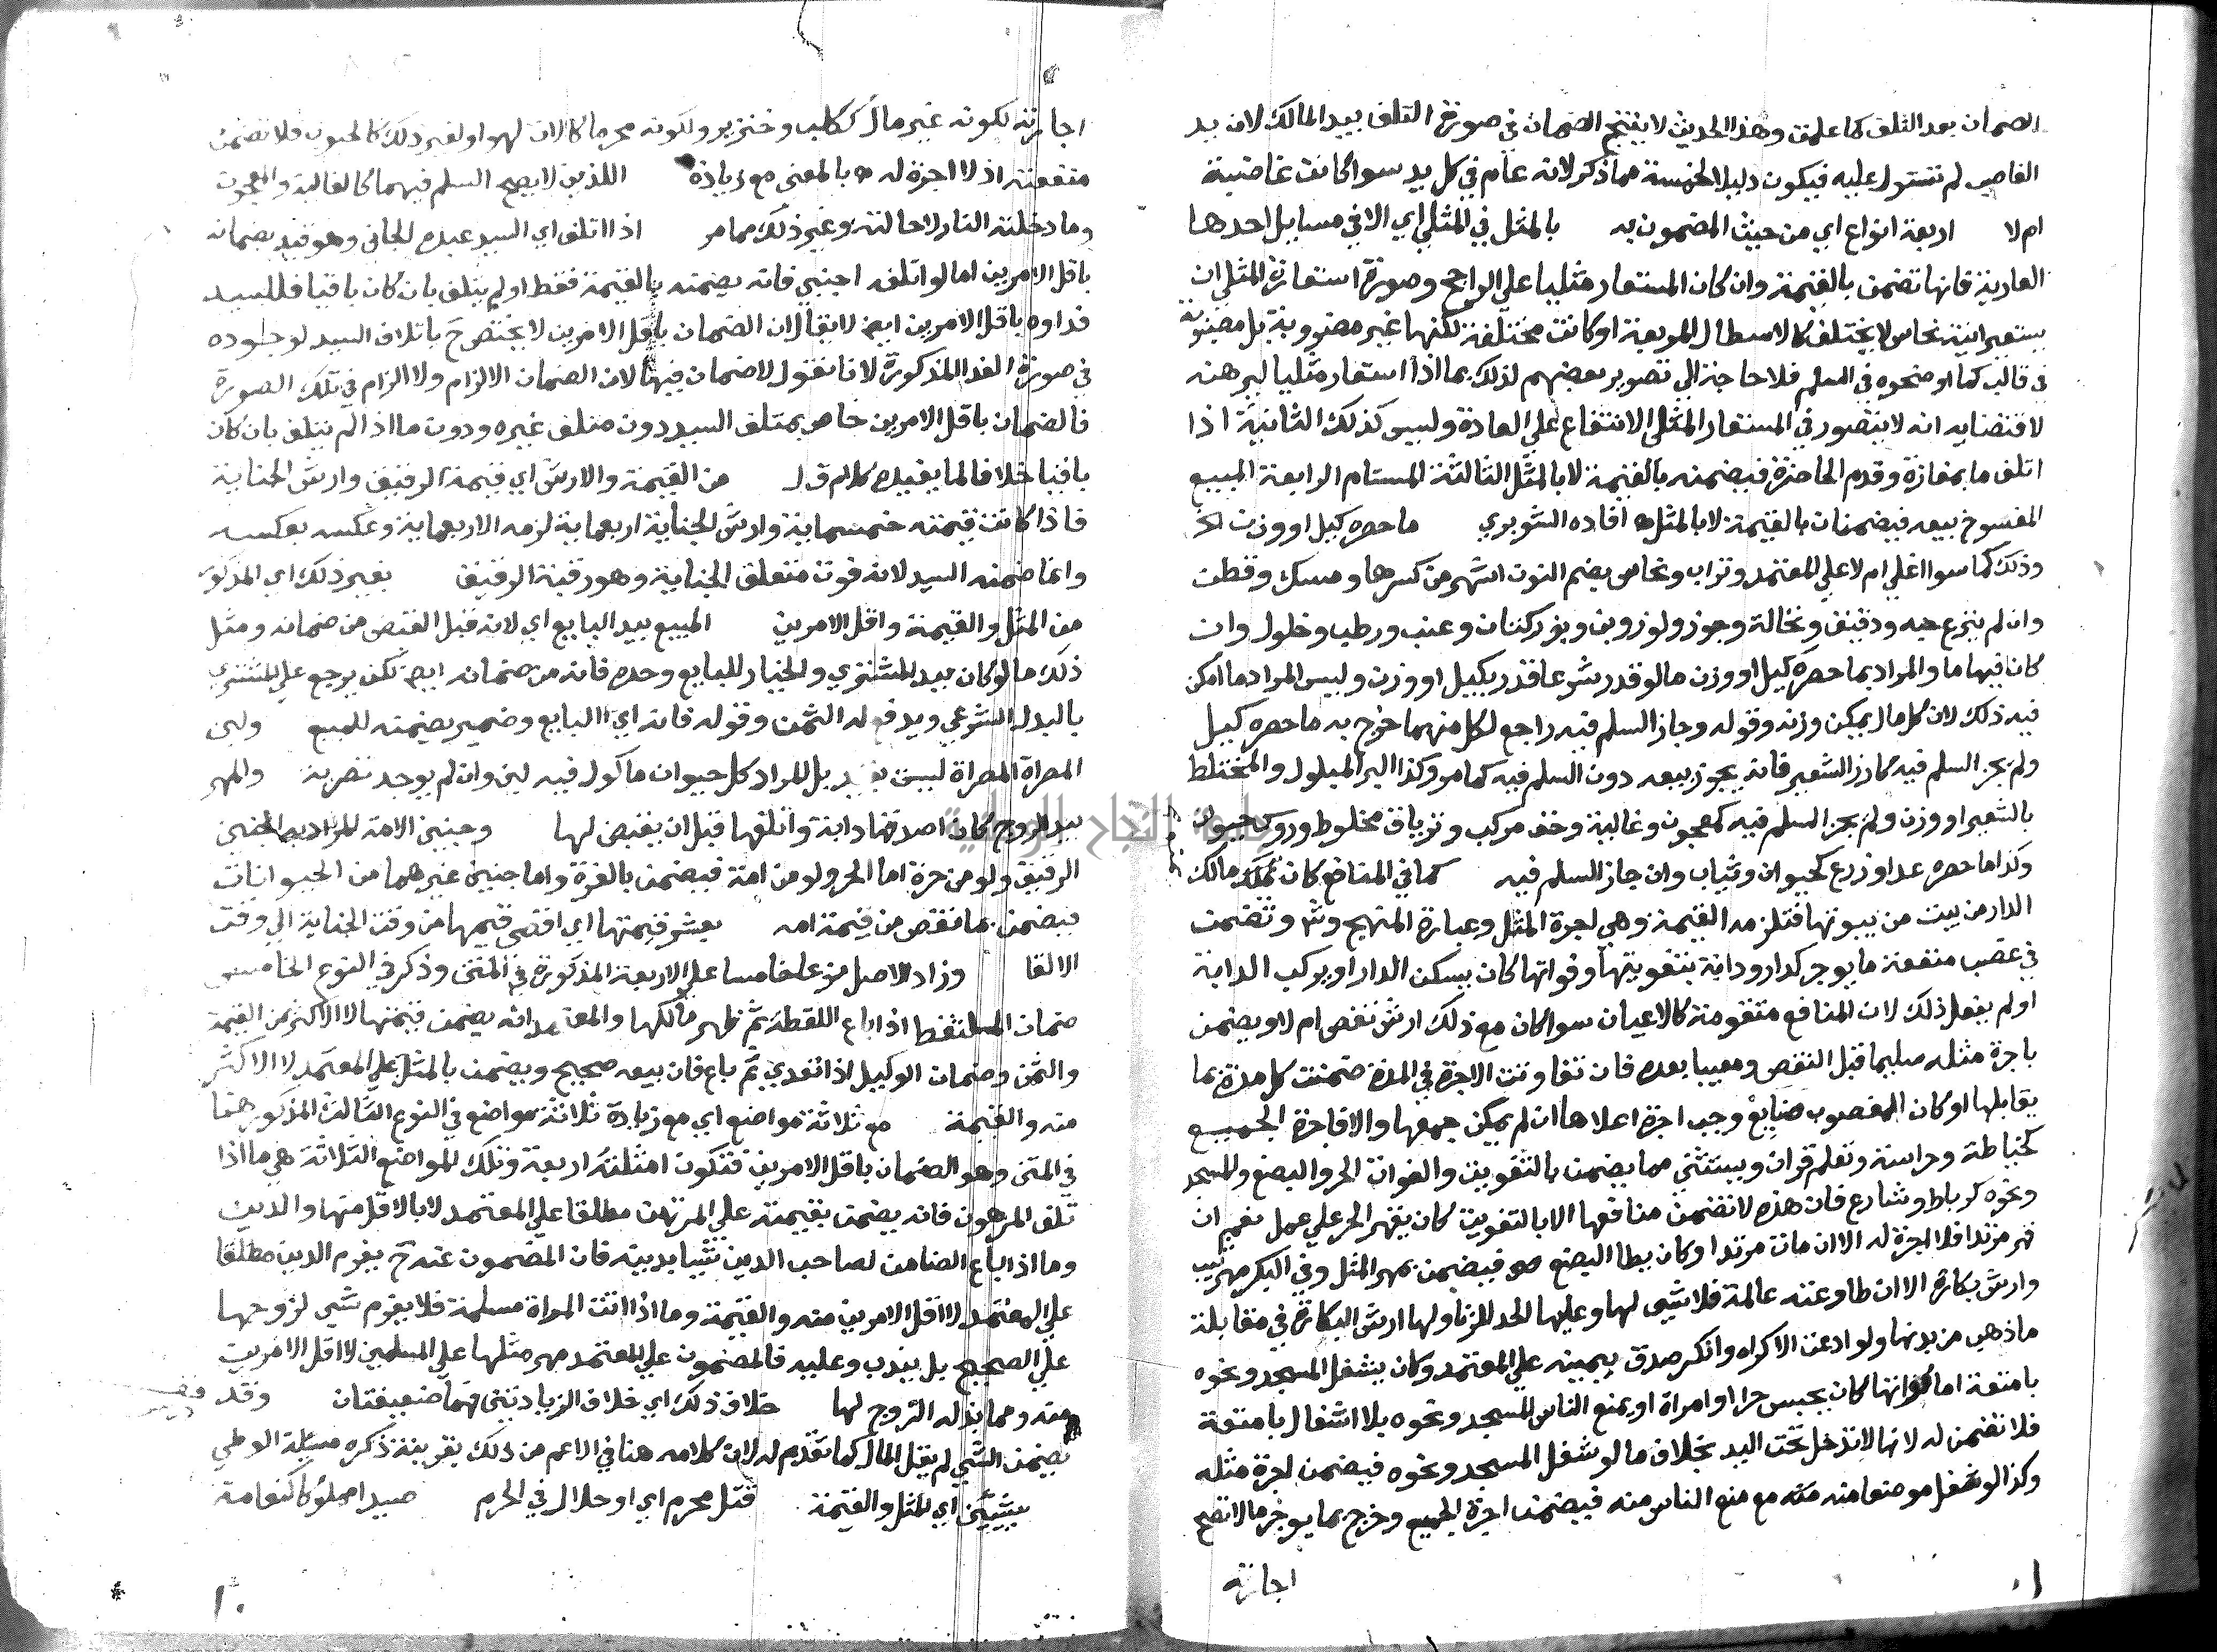 الضمان بعد التلف كما علمت وهذا الحديث لا ينتج الضمان في صورة التلف بيد المالك لان يد
الغاصب لم تستول عليه فيكون دليلا لخمسة مما ذكر لانه عام في كل يد سوا كانت غاصبة
ام لا اربعة انواع اي من حيث المضمون به بالمثل في المثلي اي الا في مسايل احدها
العارية فانها تضمن بالقيمة وان كان المستعار مثليا علي الراجح وصورة استعارة المثلي ان
يستعير انية نحاس لا يختلف كالاسطال المربعة او كانت مختلفة لكنها غير مضروبة بل مصبوبة
في قالب كما اوضحوه في السلم فلا حاجة الي تصوير بعضهم لذلك بما اذا استعار مثليا ليرهنه
لاقتضايه انه لا يتصور في المستعار المثلي الانتفاع علي العادة وليس كذلك الثانية اذا
اتلف ما بمفازة وقدم الحاضرة فيضمنه بالقيمة لا بالمثل الثالثة المستام الرابعة المبيع
المفسوخ بيعه فيضمنان بالقيمة لا بالمثل اه افاده الشوبري ما حصره كيل او وزن الخ
وذلك كما سوا اغلي ام لا علي المعتمد وتراب ونحاس بضم النون اشهر من كسرها ومسك وقطن
وان لم ينزع حبه ودقيق ونخالة وجوز ولوز وبن وبزر كتان وعنب ورطب وخلول وان
كان فيها ما والمراد بما حصره كيل او وزن ما لو قدر شرعا قدر بكيل او وزن وليس المراد ما امكن
فيه ذلك لان كل مال يمكن وزنه وقوله وجاز السلم فيه راجع لكل منهما خرج به ما حصره كيل
ولم يجز السلم فيه كارز الشعير فانه يجوز بيعه دون السلم فيه كما مر وكذا البر المبلول والمختلط
بالشعير او وزن ولم يجز السلم فيه كمعجون وغالية وخف مركب وترياق مخلوط وروس حيوان
وكذا ما حصره عد او ذرع كحيوان وثياب وان جاز السلم فيه كما في المنافع كان مالك
الدار من بيت من بيوتها فتلزمه القيمة وهي اجرة المثل وعبارة المنهج وش وتضمن
في غصب منفعة ما يوجر كدار ودابة بتفويتها وفواتها كان يسكن الدار او يركب الدابة
او لم يفعل ذلك لان المنافع متقومة كالاعيان سوا كان مع ذلك ارش نقص ام لا ويضمن
باجرة مثله سليما قبل النقص ومعيبا بعده فان تفاوتت الاجرة في المدة ضمنت كل مدة بما
يقابلها او كان المغصوب صنايع وجب اجرة اعلاها ان لم يمكن جمعها والا فاجرة الجميع
كخياطة وحراسة وتعلم قران ويستثني مما يضمن بالتفويت والفوات الحر والبضع والمسجد
ونحوه كرباط وشارع فان هذه لا تضمن منافعها الا بالتفويت كان يقهر الحر علي عمل نعم ان
قهر مرتدا فلا اجرة له الا ان مات مرتدا وكان يطا البضع فيضمن بمهر المثل وفي البكر مهر ثيب
وارش بكارة الا ان طاوعته عالمة فلا شي لها وعليها الحد للزنا ولها ارش البكارة في مقابلة
ما ذهب من بدنها ولو ادعت الاكراه وانكر صدق بيمينه علي المعتمد وكان يشغل المسجد ونحوه
بامتعة اما فواتها كان يحبس حرا او امراة او يمنع الناس المسجد ونحوه بلا اشغال بامتعة
فلا تضمن له لانها لا تدخل تحت اليد بخلاف ما لو شغل المسجد ونحوه فيضمن اجرة مثله
وكذا لو شغل موضعا منه مع منع الناس منه فيضمن اجرة الجميع وخرج بما يوجر ما لا تصح
اجارته
اجارته لكونه غير مال ككلب وخنزير ولكونه محرما كالات لهو او لغير ذلك كالحبوب فلا تضمن
منفعته اذ لا اجرة له اه بالمعني مع زيادة اللذين لا يصح السلم فيهما كالغالية والمعجون
وما دخلته النار لاحالته وغير ذلك مما مر اذا اتلف اي السيد عبده الجاني وهو قيد بضمانه
باقل الامرين اما لو اتلفه اجنبي فانه يضمنه بالقيمة فقط او لم يتلف بان كان باقيا فللسيد
فداوه باقل الامرين ايض لا يقال ان الضمان باقل الامرين لا يختص ح باتلاف السيد لوجوده
في صورة الفدا المذكورة لانا نقول لا ضمان فيها لان الضمان الالزام ولا الزام في تلك الصورة
فالضمان باقل الامرين خاص بمتلف السيد دون متلف غيره ودون ما اذا لم يتلف بان كان
باقيا خلافا لما يفيده كلام ق ل من القيمة والارش اي قيمة الرقيق وارش الجناية
فاذا كانت قيمته خمسماية وارش الجناية اربعماية لزمه الاربعماية وعكسه بعكسه
وانما ضمنه السيد لانه فوت متعلق الجناية وهو رقبة الرقيق بغير ذلك اي المذكور
من المثل والقيمة واقل الامرين المبيع بيد البايع اي لانه قبل القبض من ضمانه ومثل
ذلك ما لو كان بيد المشتري والخيار للبايع وحده فانه من ضمانه ايض لكن يرجع علي المشتري
بالبدل الشرعي ويدفع له الثمن وقوله فانه اي البايع وضمير يضمنه للمبيع ولبن
المصراة المصراة ليس بقيد بل المراد كل حيوان ماكول فيه لبن وان لم يوجد تصرية والمهر
بيد الزوج كان اصدقها دابة واتلفها قبل ان يقبض لها وجنين الامة المراد به الجنين
الرقيق ولو من حرة اما الحر ولو من امة فيضمن بالغرة واما جنين غيرهما من الحيوانات
فيضمن بما نقص من قيمة امه بعشر قيمتها اي اقصي قيمها من وقت الجناية الي وقت
الالقا وزاد الاصل نوعا خامسا علي الاربعة المذكورة في المتن وذكر في النوع الخامس
ضمان الملتقط اذا باع اللقطة ثم ظهر مالكها والمعتمد انه يضمن قيمتها لا الاكثر من القيمة
والثمن وضمان الوكيل اذا تعدي ثم باع فان بيعه صحيح ويضمن بالمثل علي المعتمد لا الاكثر
منه والقيمة مع ثلاثة مواضع اي مع زيادة ثلاثة مواضع في النوع الثالث المذكور هنا
في المتن وهو الضمان باقل الامرين فتكون امثلته اربعة وتلك المواضع الثلاثة هي ما اذا
تلف المرهون فانه يضمن بقيمته علي المرتهن مطلقا علي المعتمد لا بالاقل منها والدين
وما اذا باع الضامن لصاحب الدين شيئا بدينه فان المضمون عنه ح يغرم الدين مطلقا
علي المعتمد لا اقل الامرين منه والقيمة وما اذا اتت المراة مسلمة فلا يغرم شي لزوجها
علي الصحيح بل يندب وعليه فالمضمون علي المعتمد مهر مثلها علي المسلمين لا اقل الامرين
منه ومما بذله الزوج لها خلاف ذلك اي خلاف الزيادتين فهما ضعيفتان وقد
يضمن الشي لم يقل المال كما تقدم له لان كلامه هنا في الاعم من ذلك بقرينة ذكره مسيلة الوطي
بشييين اي المثل والقيمة قتل محرم اي او حلال في الحرم صيدا مملوكا كنعامة